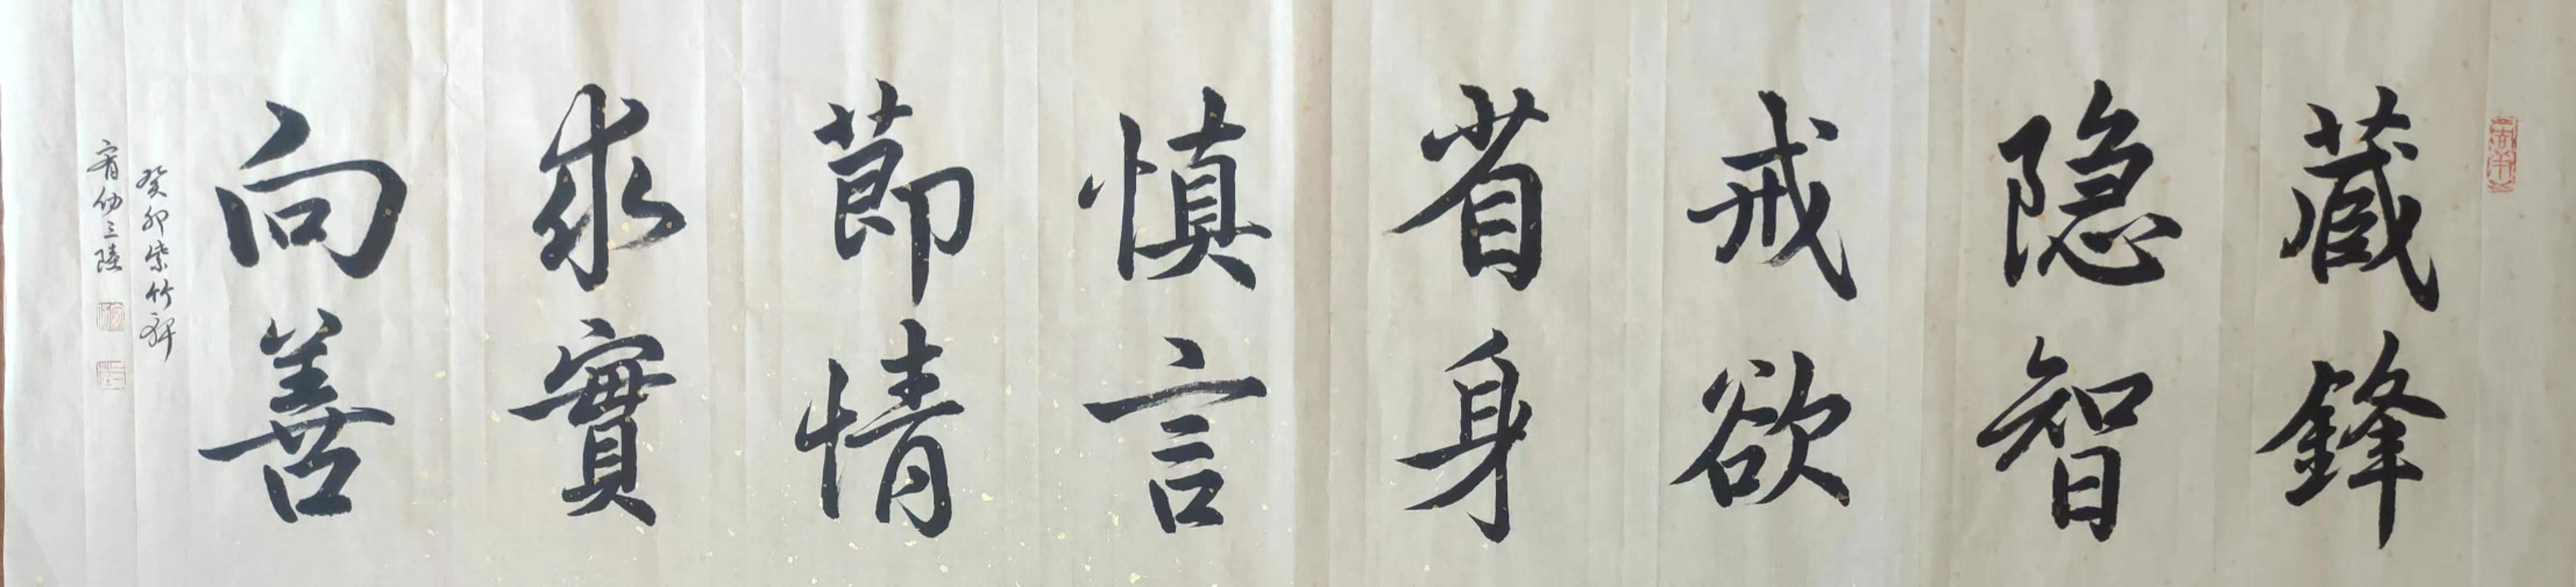 藏鋒
隐智
戒欲
省身
慎言
莭情
求實
向善
癸卯紫竹軒
三陸